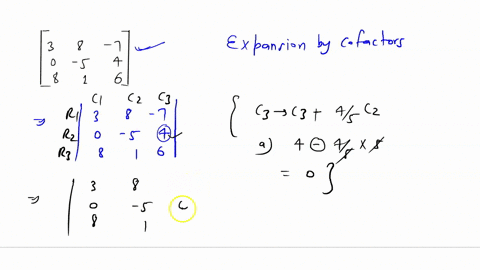 [3 8 -7]
[0 -5 4]
[8 1 6]
Expansion by cofactors
C1 C2 C3
⇒ R1 | 3 8 -7 |
R2 | 0 -5 4 |
R3 | 8 1 6 |
{ C3 → C3 + 4/5 C2
a) 4 - 4/5 × 5
= 0 }
⇒ | 3 8
0 -5
8 1